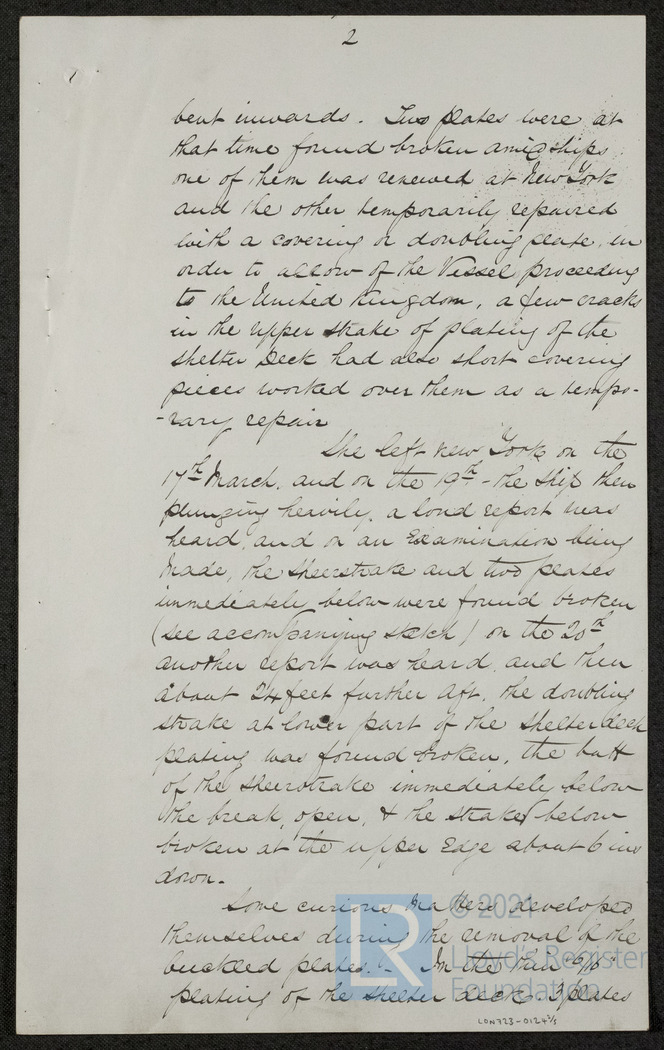 2
bent inwards. Two plates were at
that time found broken amidships
one of them was renewed at New York
and the other temporarily repaired
with a covering or doubling plate, in
order to allow of the Vessel proceeding
to the United Kingdom, a few cracks
in the upper strake of plating of the
shelter Deck had also short covering
pieces worked over them as a tempo-
-rary repair
She left New York on the
17th March, and on the 19th - the ship then
plunging heavily, a loud report was
heard, and on an Examination being
Made, the sheerstrake and two plates
immediately below were found broken
(see accompanying sketch) on the 20th
another report was heard, and then
about 24 feet further aft, the doubling
strake at lower part of the shelter deck
plating was found broken, the butt
of the sheerstrake immediately below
the break, open, & the strake below
broken at the upper Edge about 6 ins
down.
Some curious Matters developed
themselves during the removal of the
buckled plates. - In the thin 6/16"
plating of the shelter deck. 3 plates
LON723-0124 2/5
© 2021
LR
Lloyd's Register
Foundation